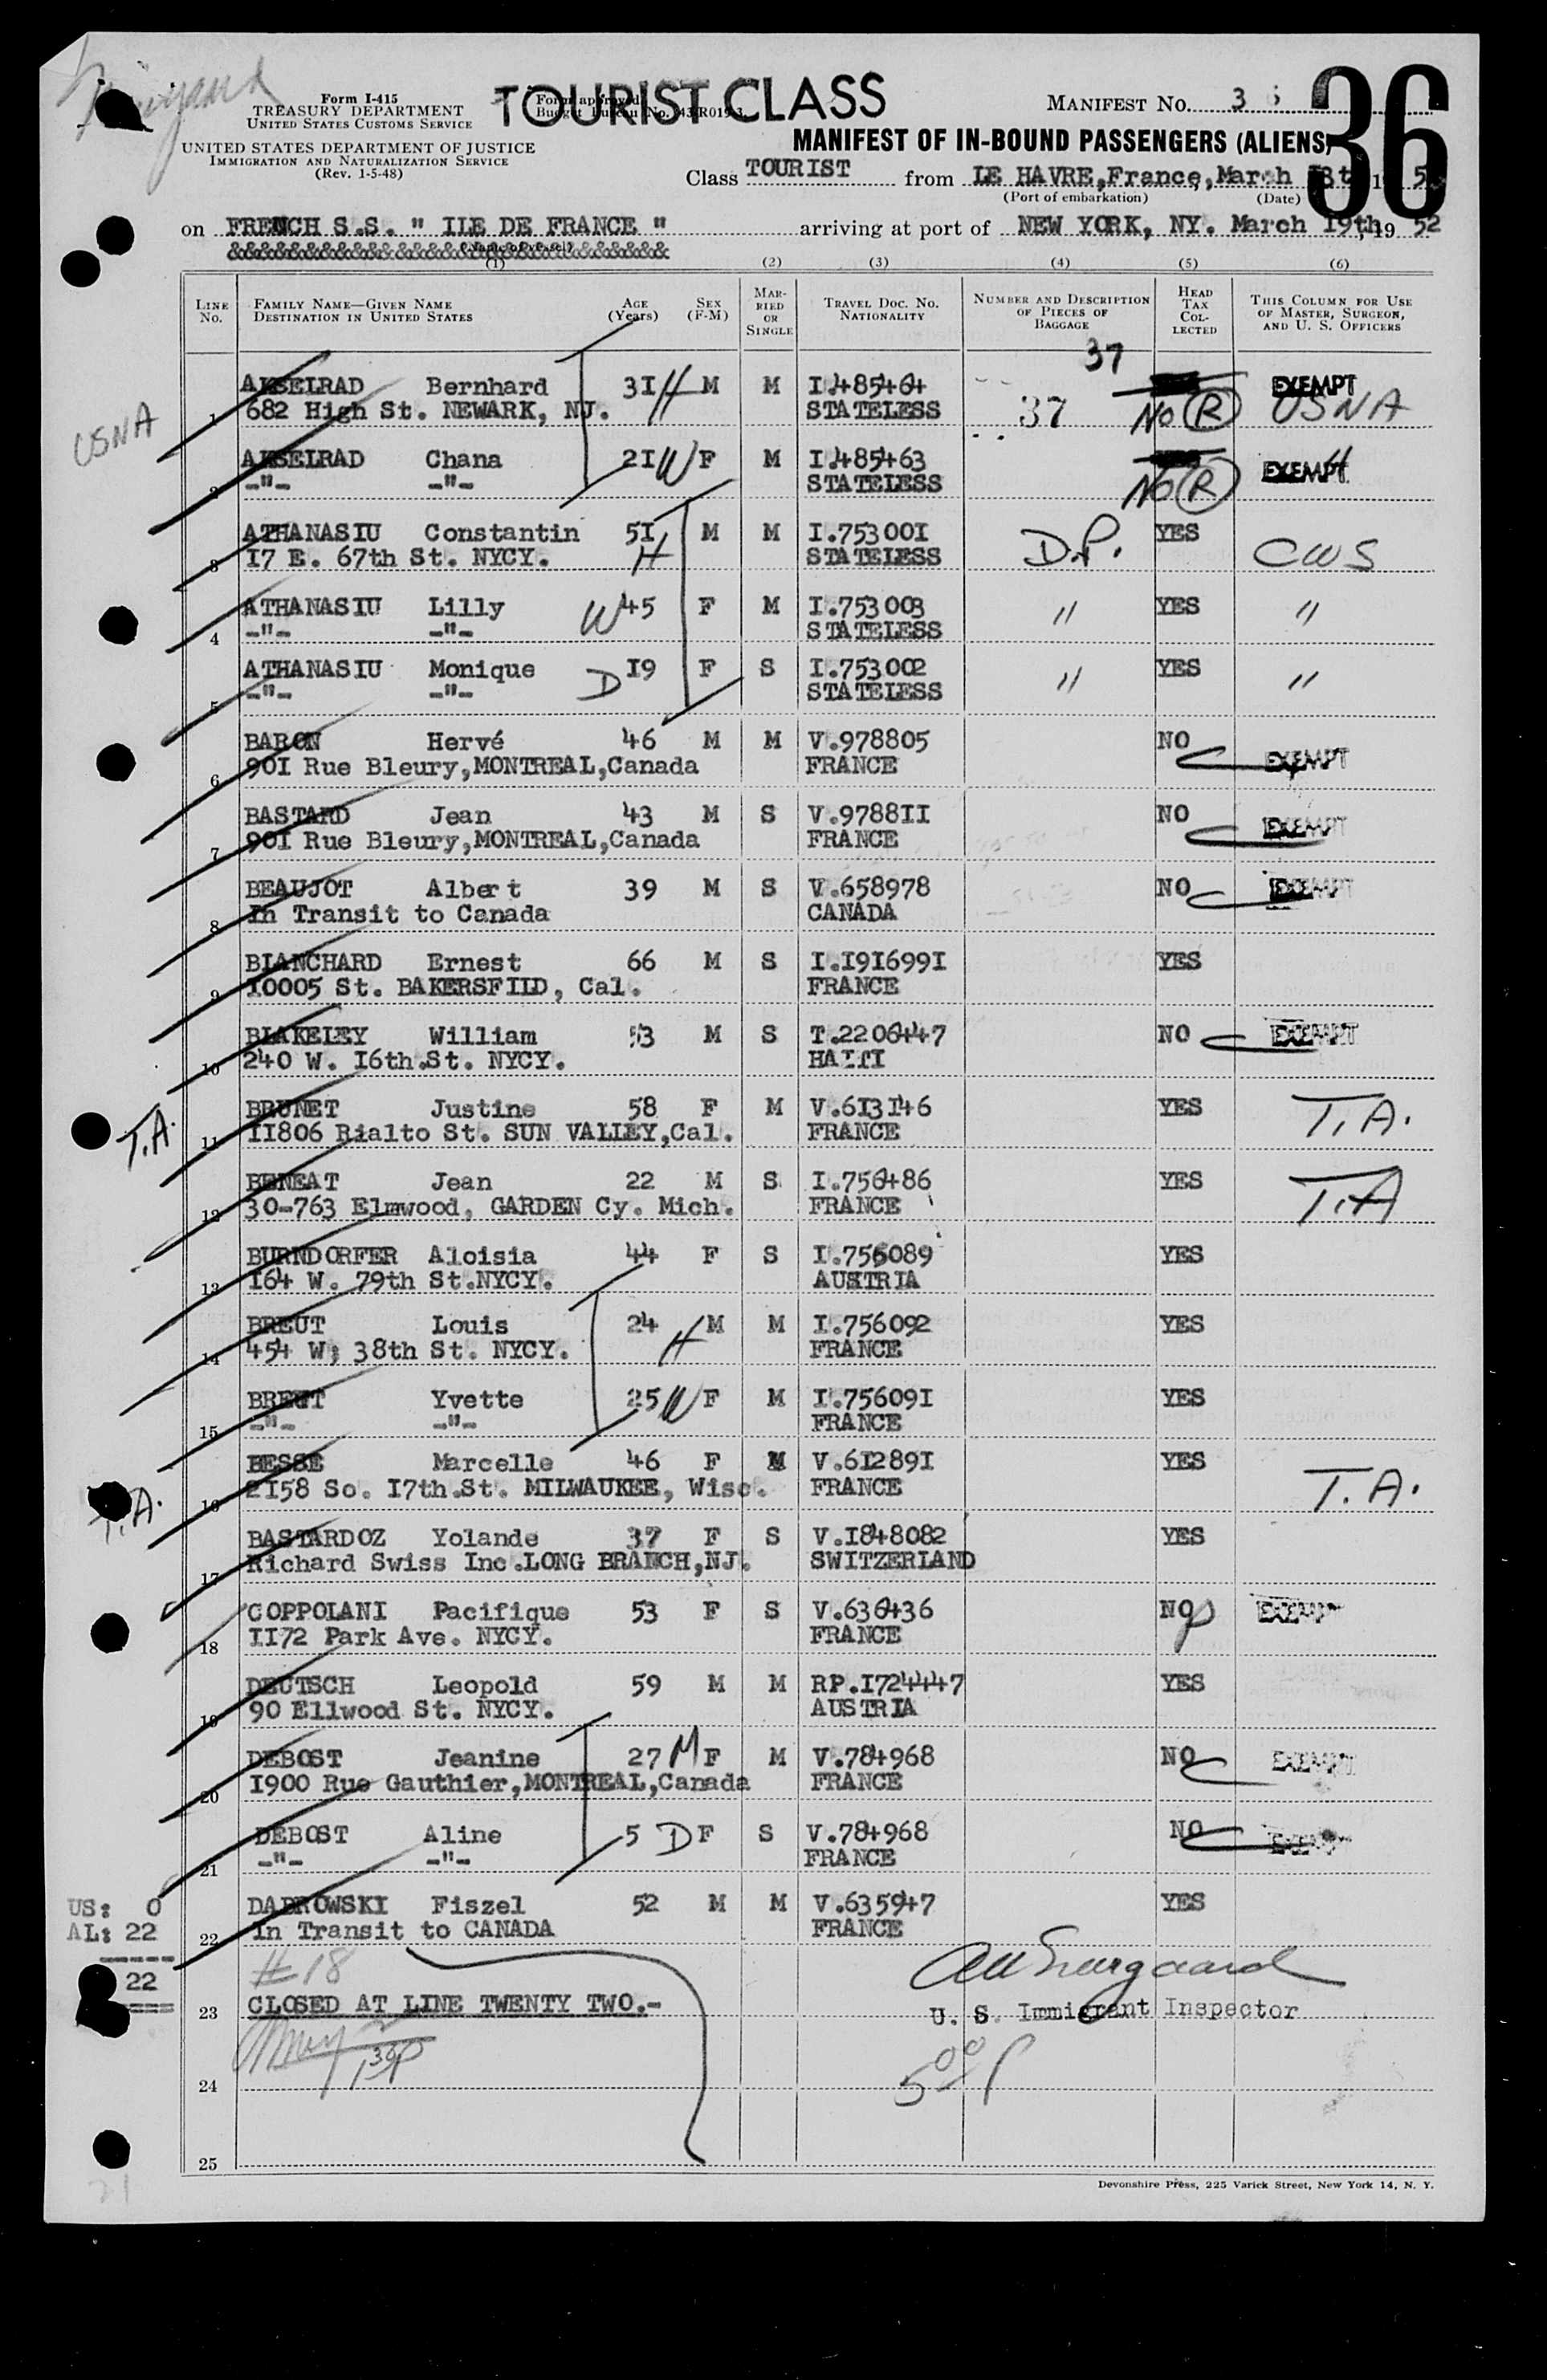 Form I-415
TREASURY DEPARTMENT
UNITED STATES CUSTOMS SERVICE
UNITED STATES DEPARTMENT OF JUSTICE
IMMIGRATION AND NATURALIZATION SERVICE
(Rev. 1-5-48)
TOURIST CLASS
Form approved.
MANIFEST NO. 36
36
MANIFEST OF IN-BOUND PASSENGERS (ALIENS)
Class TOURIST from LE HAVRE, France, March
(Port of embarkation) (Date)
on FRENCH S.S. " ILE DE FRANCE " arriving at port of NEW YORK, NY. March 19th, 19 52
(1) (2) (3) (4) (5) (6)
LINE No. FAMILY NAME—GIVEN NAME DESTINATION IN UNITED STATES AGE (Years) SEX (F-M) MARRIED OR SINGLE TRAVEL DOC. NO. NATIONALITY NUMBER AND DESCRIPTION OF PIECES OF BAGGAGE HEAD TAX COLLECTED THIS COLUMN FOR USE OF MASTER, SURGEON, AND U. S. OFFICERS
37
AKSELRAD Bernhard 31 H M M I.485464 EXEMPT
USNA 1 682 High St. NEWARK, NJ. STATELESS 37 No (R) USNA
AKSELRAD Chana 21 W F M I.485463 EXEMPT "
2 -"- -"- STATELESS No (R)
ATHANASIU Constantin 51 H M M I.753001 D.P. YES CWS
3 17 E. 67th St. NYCY. STATELESS
ATHANASIU Lilly W 45 F M I.753003 " YES "
4 -"- -"- STATELESS
ATHANASIU Monique D 19 F S I.753002 " YES "
5 -"- -"- STATELESS
BARON Hervé 46 M M V.978805 NO EXEMPT
6 901 Rue Bleury, MONTREAL, Canada FRANCE
BASTARD Jean 43 M S V.978811 NO EXEMPT
7 901 Rue Bleury, MONTREAL, Canada FRANCE
BEAUJOT Albert 39 M S V.658978 NO EXEMPT
8 In Transit to Canada CANADA
BLANCHARD Ernest 66 M S I.1916991 YES
9 10005 St. BAKERSFILD, Cal. FRANCE
BLAKELEY William 53 M S T.2206447 NO EXEMPT
10 240 W. 16th.St. NYCY. HAITI
BRUNET Justine 58 F M V.613146 YES T.A.
T.A. 11 11806 Rialto St. SUN VALLEY, Cal. FRANCE
BENEAT Jean 22 M S I.756486 YES T.A
12 30-763 Elmwood, GARDEN Cy. Mich. FRANCE
BURNDORFER Aloisia 44 F S I.756089 YES
13 164 W. 79th St.NYCY. AUSTRIA
BREUT Louis 24 H M M I.756092 YES
14 454 W; 38th St. NYCY. FRANCE
BREUT Yvette 25 W F M I.756091 YES
15 -"- -"- FRANCE
BESSE Marcelle 46 F M V.612891 YES T.A.
T.A. 16 2158 So. 17th.St. MILWAUKEE, Wisc. FRANCE
BASTARDOZ Yolande 37 F S V.1848082 YES
17 Richard Swiss Inc.LONG BRANCH,NJ. SWITZERLAND
COPPOLANI Pacifique 53 F S V.636436 NO EXEMPT
18 1172 Park Ave. NYCY. FRANCE
DEUTSCH Leopold 59 M M RP.1724447 YES
19 90 Ellwood St. NYCY. AUSTRIA
DEBOST Jeanine 27 M F M V.784968 NO EXEMPT
20 1900 Rue Gauthier, MONTREAL, Canada FRANCE
DEBOST Aline 5 D F S V.784968 NO EXEMPT
21 -"- -"- FRANCE
US: 0 DABROWSKI Fiszel 52 M M V.635947 YES
AL: 22 22 In Transit to CANADA FRANCE
22 # 18
23 CLOSED AT LINE TWENTY TWO.- U. S. Immigrant Inspector
130P 500P
24
25
21
Devonshire Press, 225 Varick Street, New York 14, N. Y.